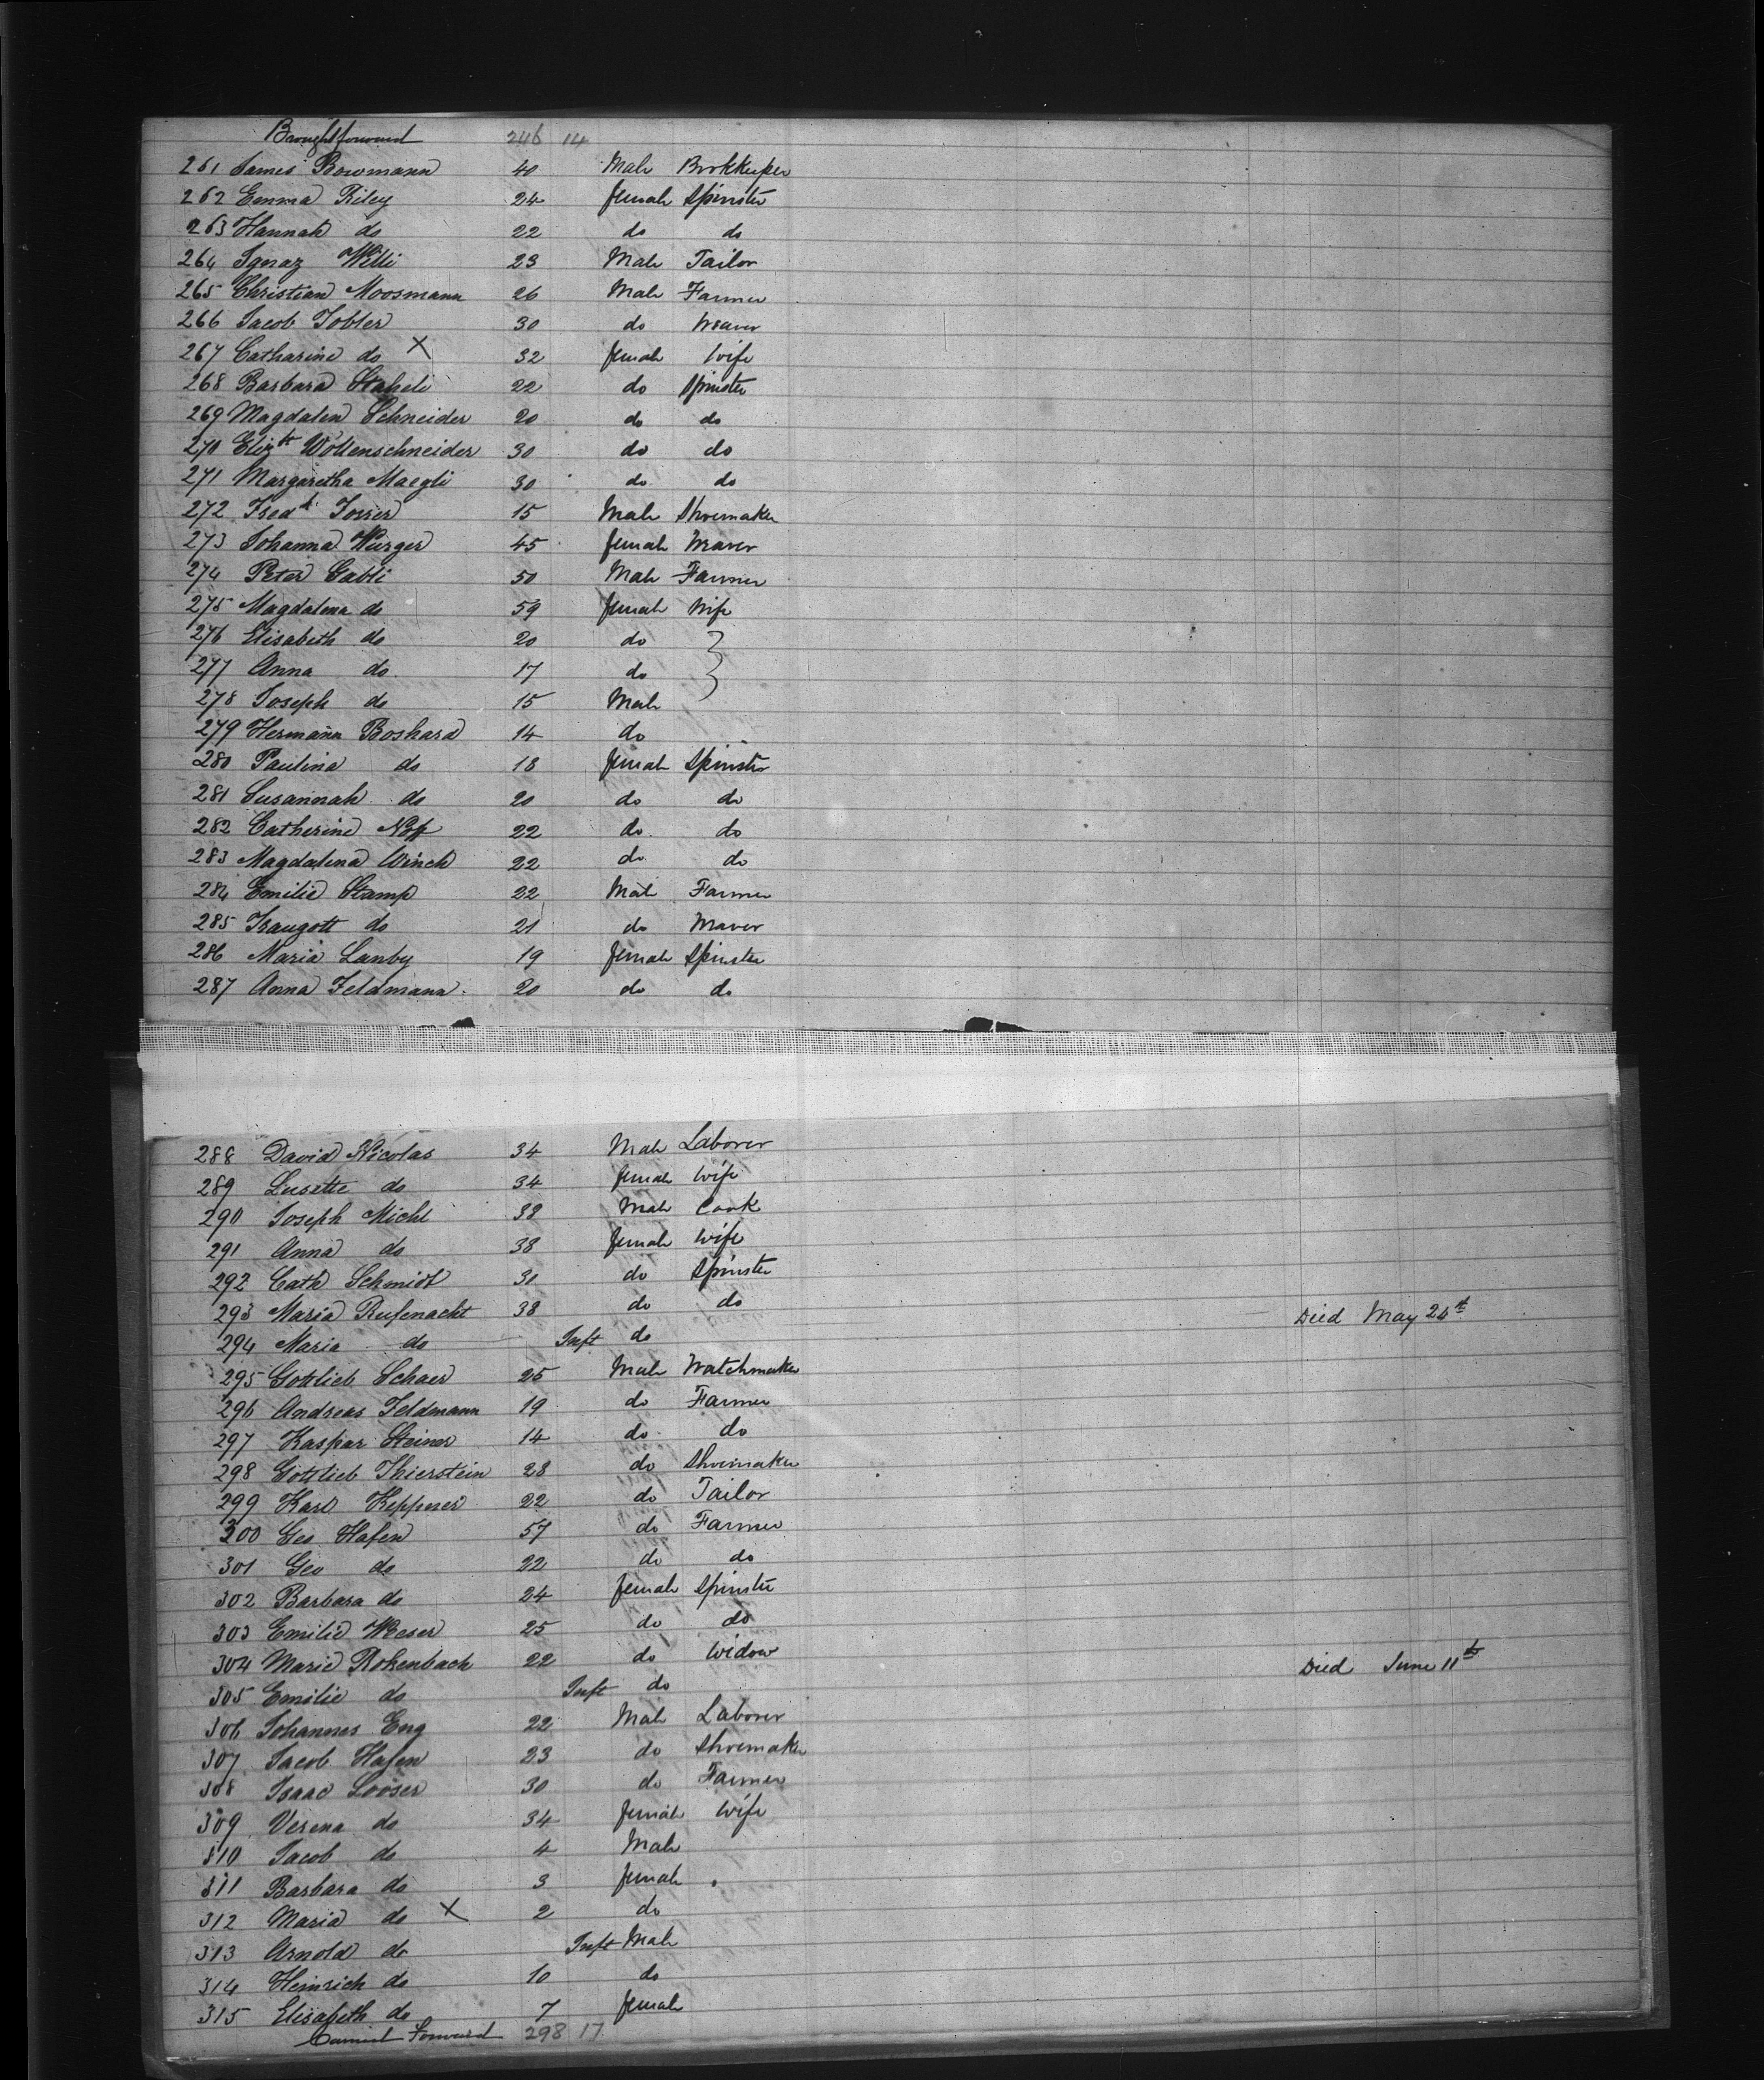 Brought forward 246 14
261 James Bowmann 40 Male Bookkeeper
262 Emma Riley 24 female Spinster
263 Hannah do 22 do do
264 Ignaz Willi 23 Male Tailor
265 Christian Moosmann 26 Male Farmer
266 Jacob Tobler 30 do Weaver
267 Catharine do X 32 female Wife
268 Barbara Staheli 22 do Spinster
269 Magdalen Schneider 20 do do
270 Elizth Wollenschneider 30 do do
271 Margaretha Maegli 30 do do
272 Fredk 15 Male Shoemaker
273 Johanna Wurger 45 female Weaver
274 Peter Gabli 50 Male Farmer
275 Magdalena do 59 female Wife
276 Elisabeth do 20 do
277 Anna do 17 do
278 Joseph do 15 Male
279 Hermann Boshard 14 do
280 Paulina do 18 female Spinster
281 Susannah do 20 do do
282 Catherine 22 do do
283 Magdalena Winch 22 do do
284 Emilie Stamp 22 Male Farmer
285 Traugott do 21 do Weaver
286 Maria Lanby 19 female Spinster
287 Anna Feldmann 20 do do
288 David Nicolas 34 Male Laborer
289 Lusette do 34 female Wife
290 Joseph Michl 38 Male Cook
291 Anna do 38 female Wife
292 Cath Schmidt 30 do Spinster
293 Maria Rufenacht 38 do do
294 Maria do Inft do Died May 24th
295 Gottlieb Schaer 25 Male Watchmaker
296 Andreas Feldmann 19 do Farmer
297 Kaspar Steiner 14 do do
298 Gottlieb Thierstein 28 do Shoemaker
299 Karl Keppner 22 do Tailor
300 Geo Hafen 57 do Farmer
301 Geo do 22 do do
302 Barbara do 24 female Spinster
303 Emilie Weser 25 do do
304 Marie Rohenbach 22 do Widow
305 Emilie do Inft do Died June 11th
306 Johannes Eng 22 Male Laborer
307 Jacob Hafen 23 do Shoemaker
308 Isaac Looser 30 do Farmer
309 Verena do 34 female Wife
310 Jacob do 4 Male
311 Barbara do 3 female
312 Maria do X 2 do
313 Arnold do Inft Male
314 Heinrich do 10 do
315 Elisabeth do 7 female
Carried Forward 298 17